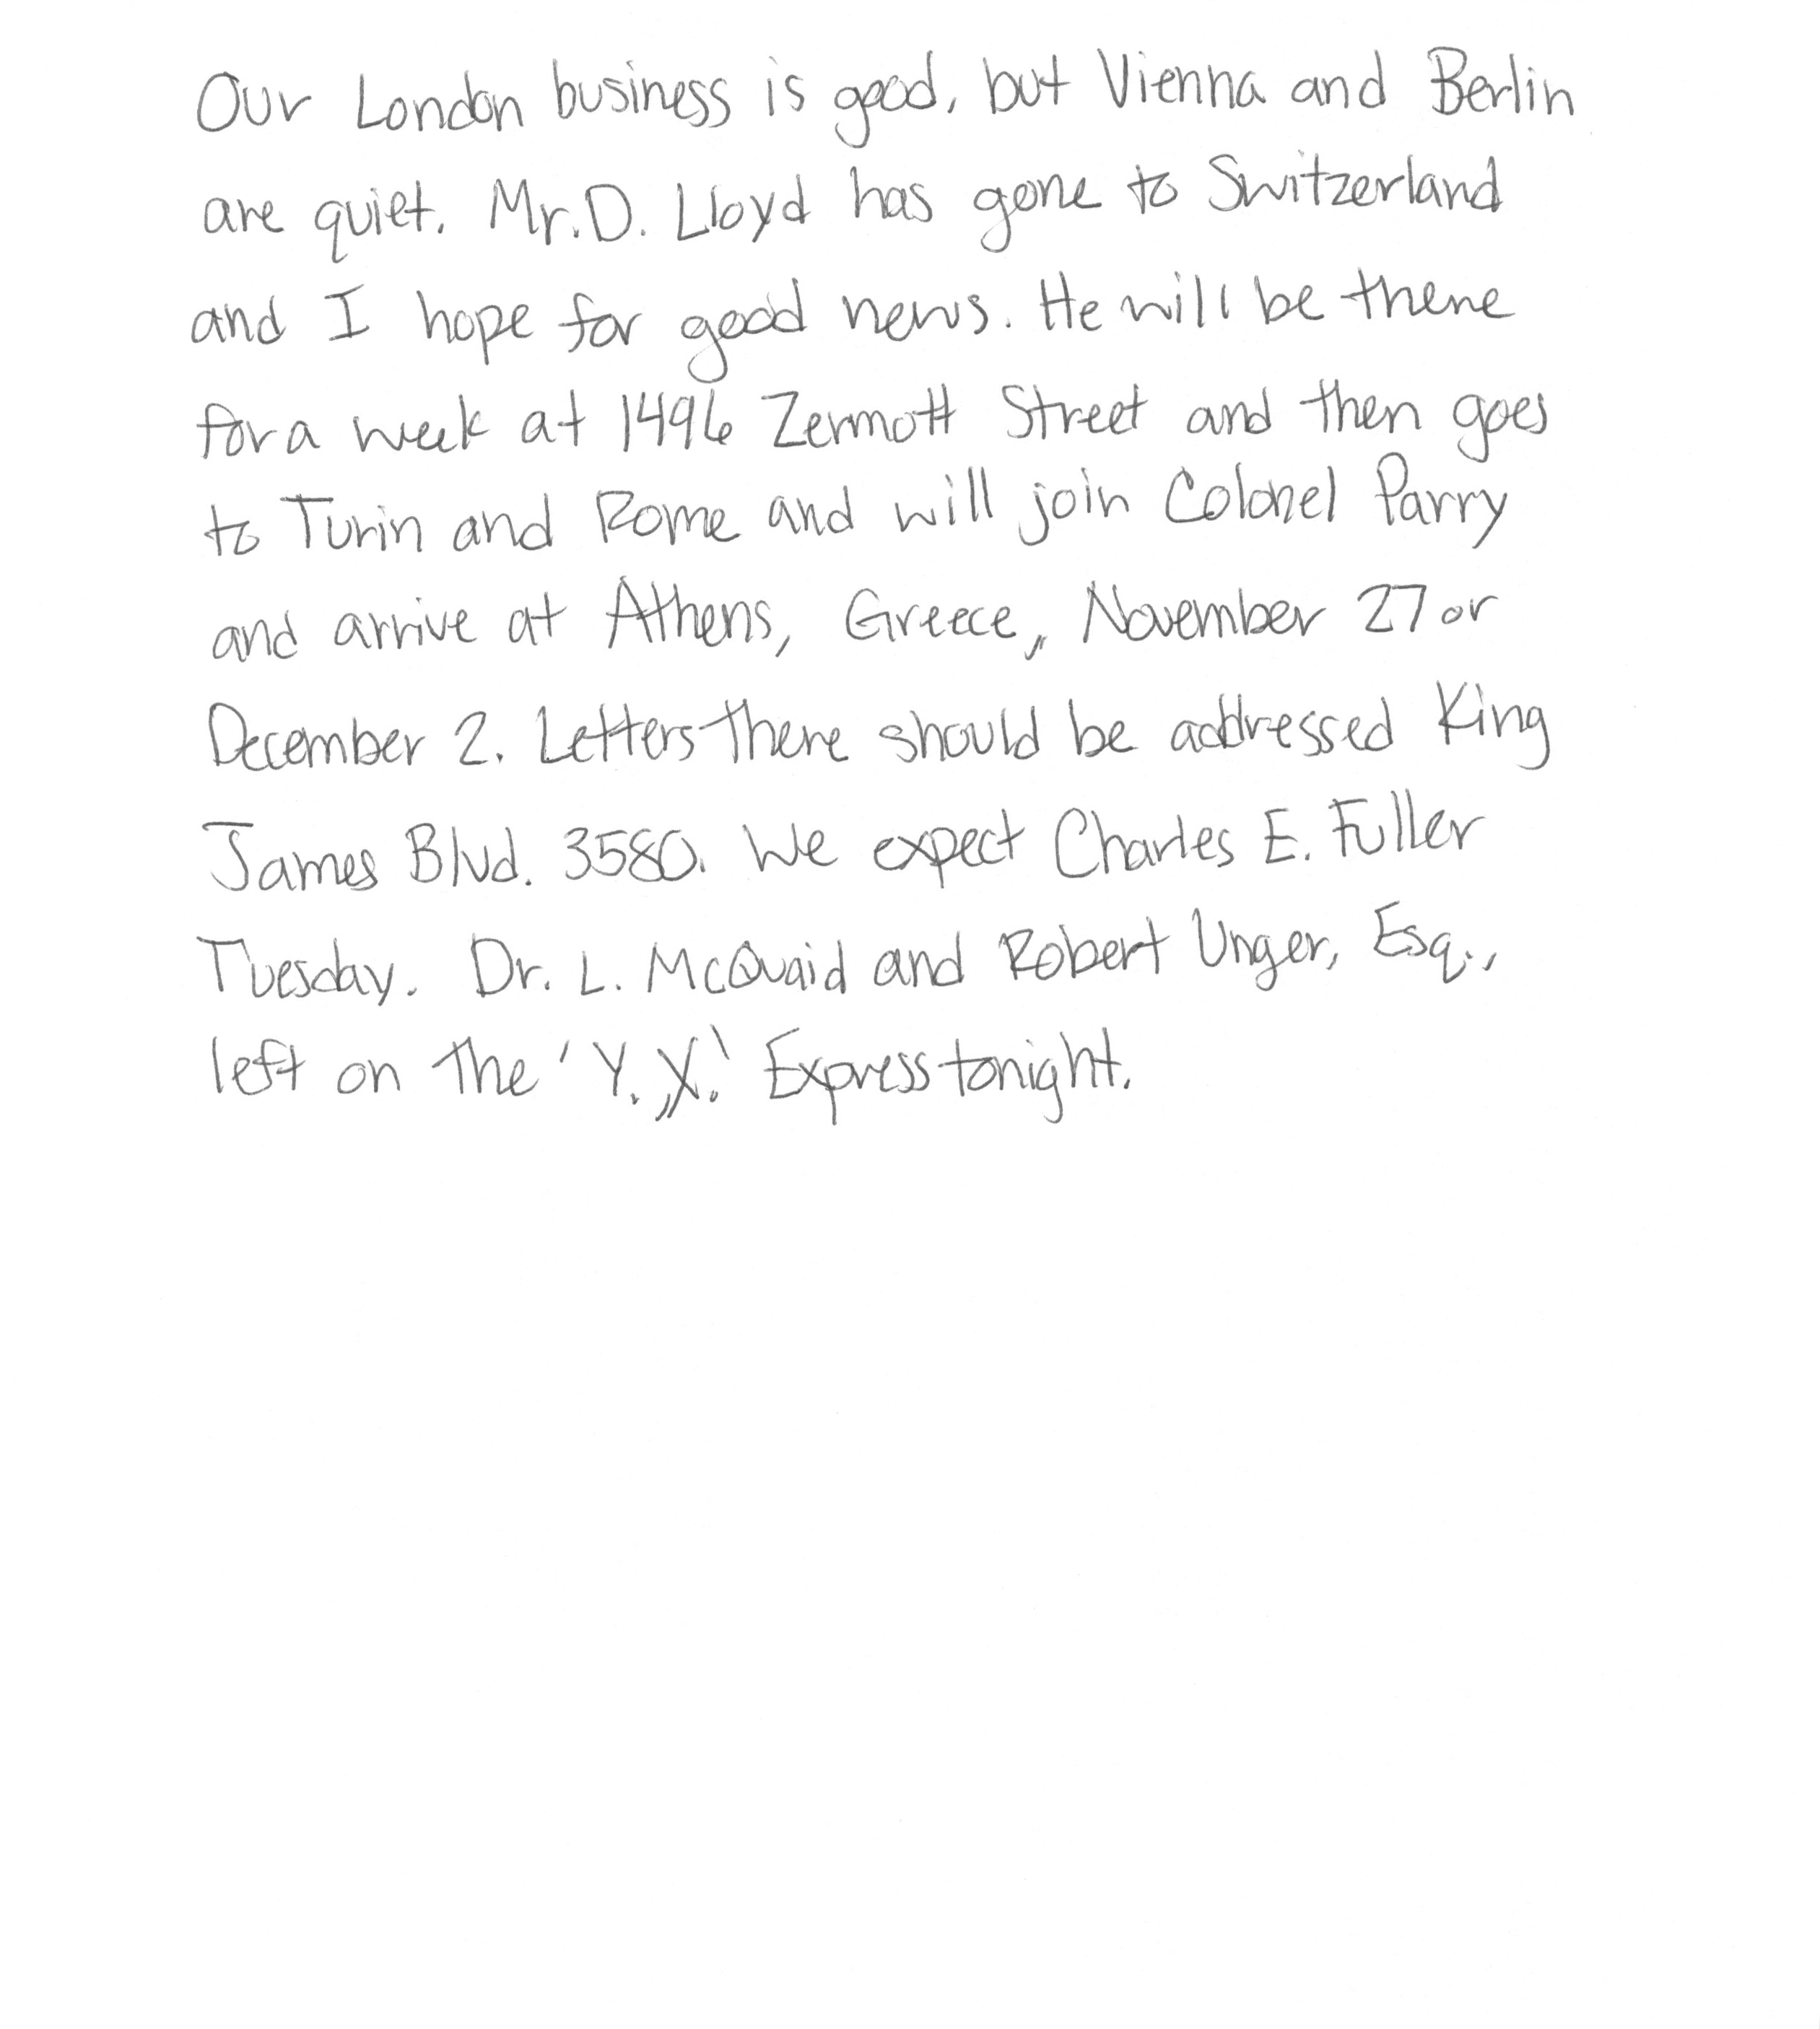 Our London business is good, but Vienna and Berlin
are quiet. Mr. D. Lloyd has gone to Switzerland
and I hope for good news. He will be there
for a week at 1496 Zermott Street and then goes
to Turin and Rome and will join Colonel Parry
and arrive at Athens, Greece, November 27 or
December 2. Letters there should be addressed King
James Blvd. 3580. We expect Charles E. Fuller
Tuesday. Dr. L. McQuaid and Robert Unger, Esq.,
left on the 'Y. X.' Express tonight.